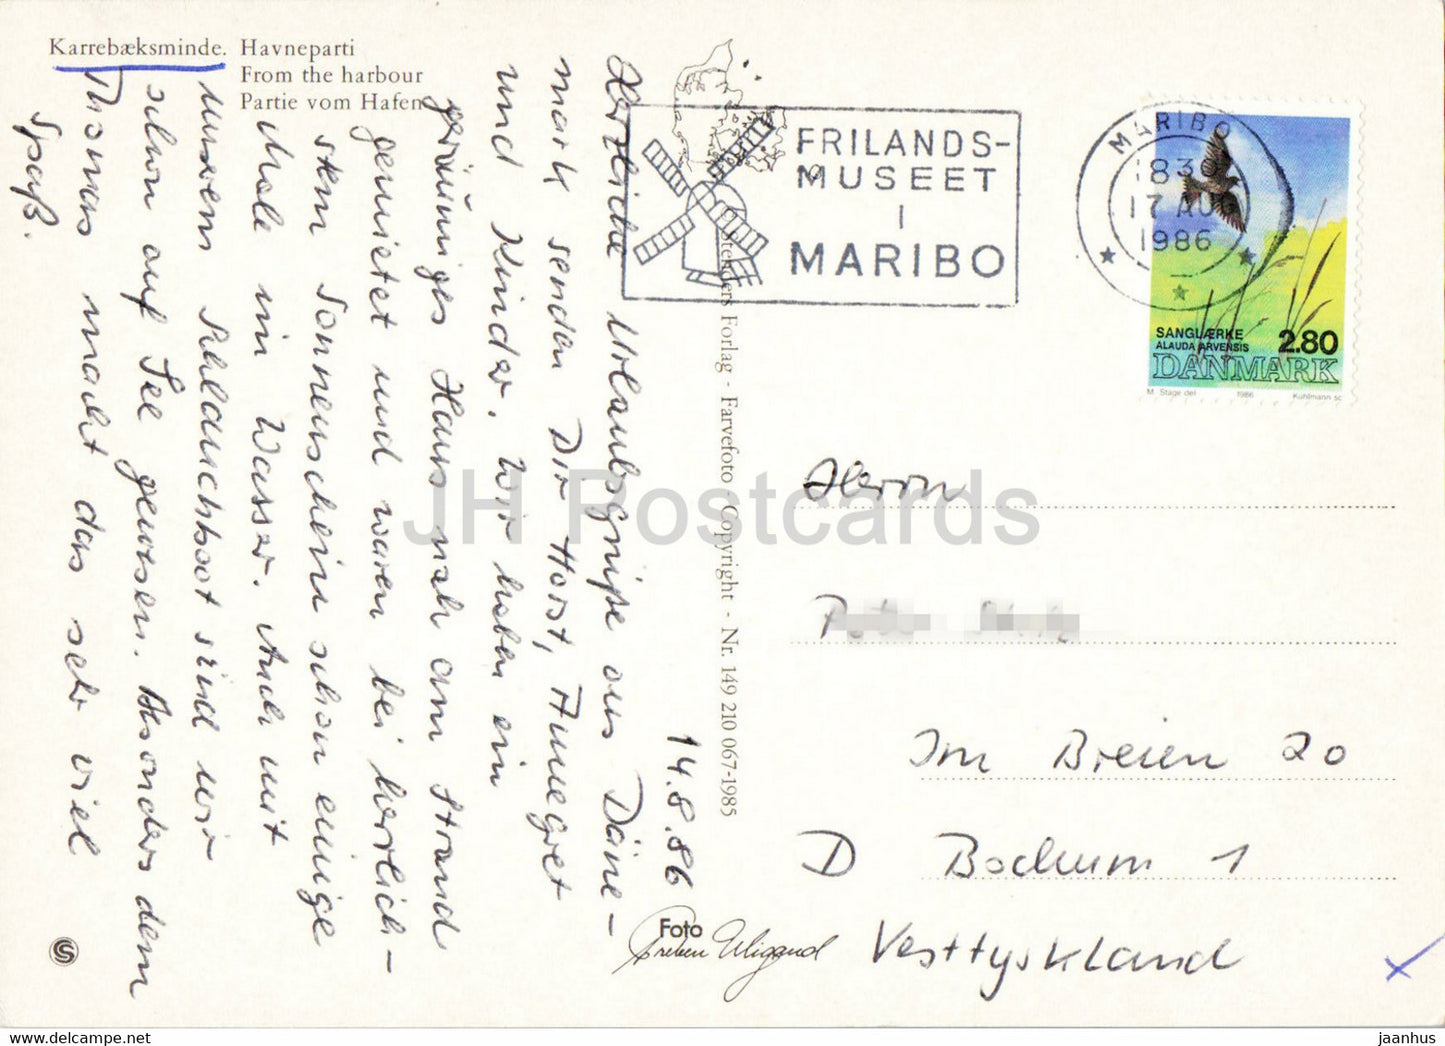 Karrebæksminde. Havneparti
From the harbour
Partie vom Hafen
14.8.86
Herzliche Urlaubsgrüße aus Däne-
mark senden Dir Horst, Annegret
und Kinder. Wir haben ein
geräumiges Haus nah am Strand
gemietet und waren bei herrlich-
stem Sonnenschein schon einige
Male im Wasser. Auch mit
unserem Schlauchboot sind wir
schon auf See gewesen. Besonders dem
Thomas macht das sehr viel
Spaß.
FRILANDS-
MUSEET
I
MARIBO
MARIBO
1830
17 AUG
1986
SANGLÆRKE
ALAUDA ARVENSIS
2.80
DANMARK
M. Stage del 1986 Kuhlmann sc
Forlag - Farvefoto - Copyright - Nr. 149 210 067-1985
Herrn
Im Breien 20
D Bochum 1
Vesttyskland
Foto
Preben Wigand
S
JH Postcards
www.hippostcard.com
jaanhus